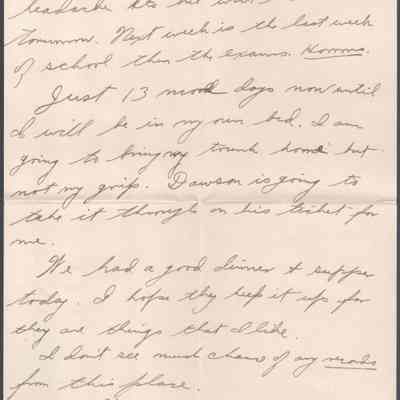 headache
tomorrow. Next week is the last week
of school then the exams. Hommo.
Just 13 more days now until
I will be in my own bed. I am
going to bring my trunk home but
not my grip. Dawson is going to
take it through on his ticket for
me.
We had a good dinner & supper
today. I hope they keep it up for
they are things that I like.
I don't see much chance of any
from this place.